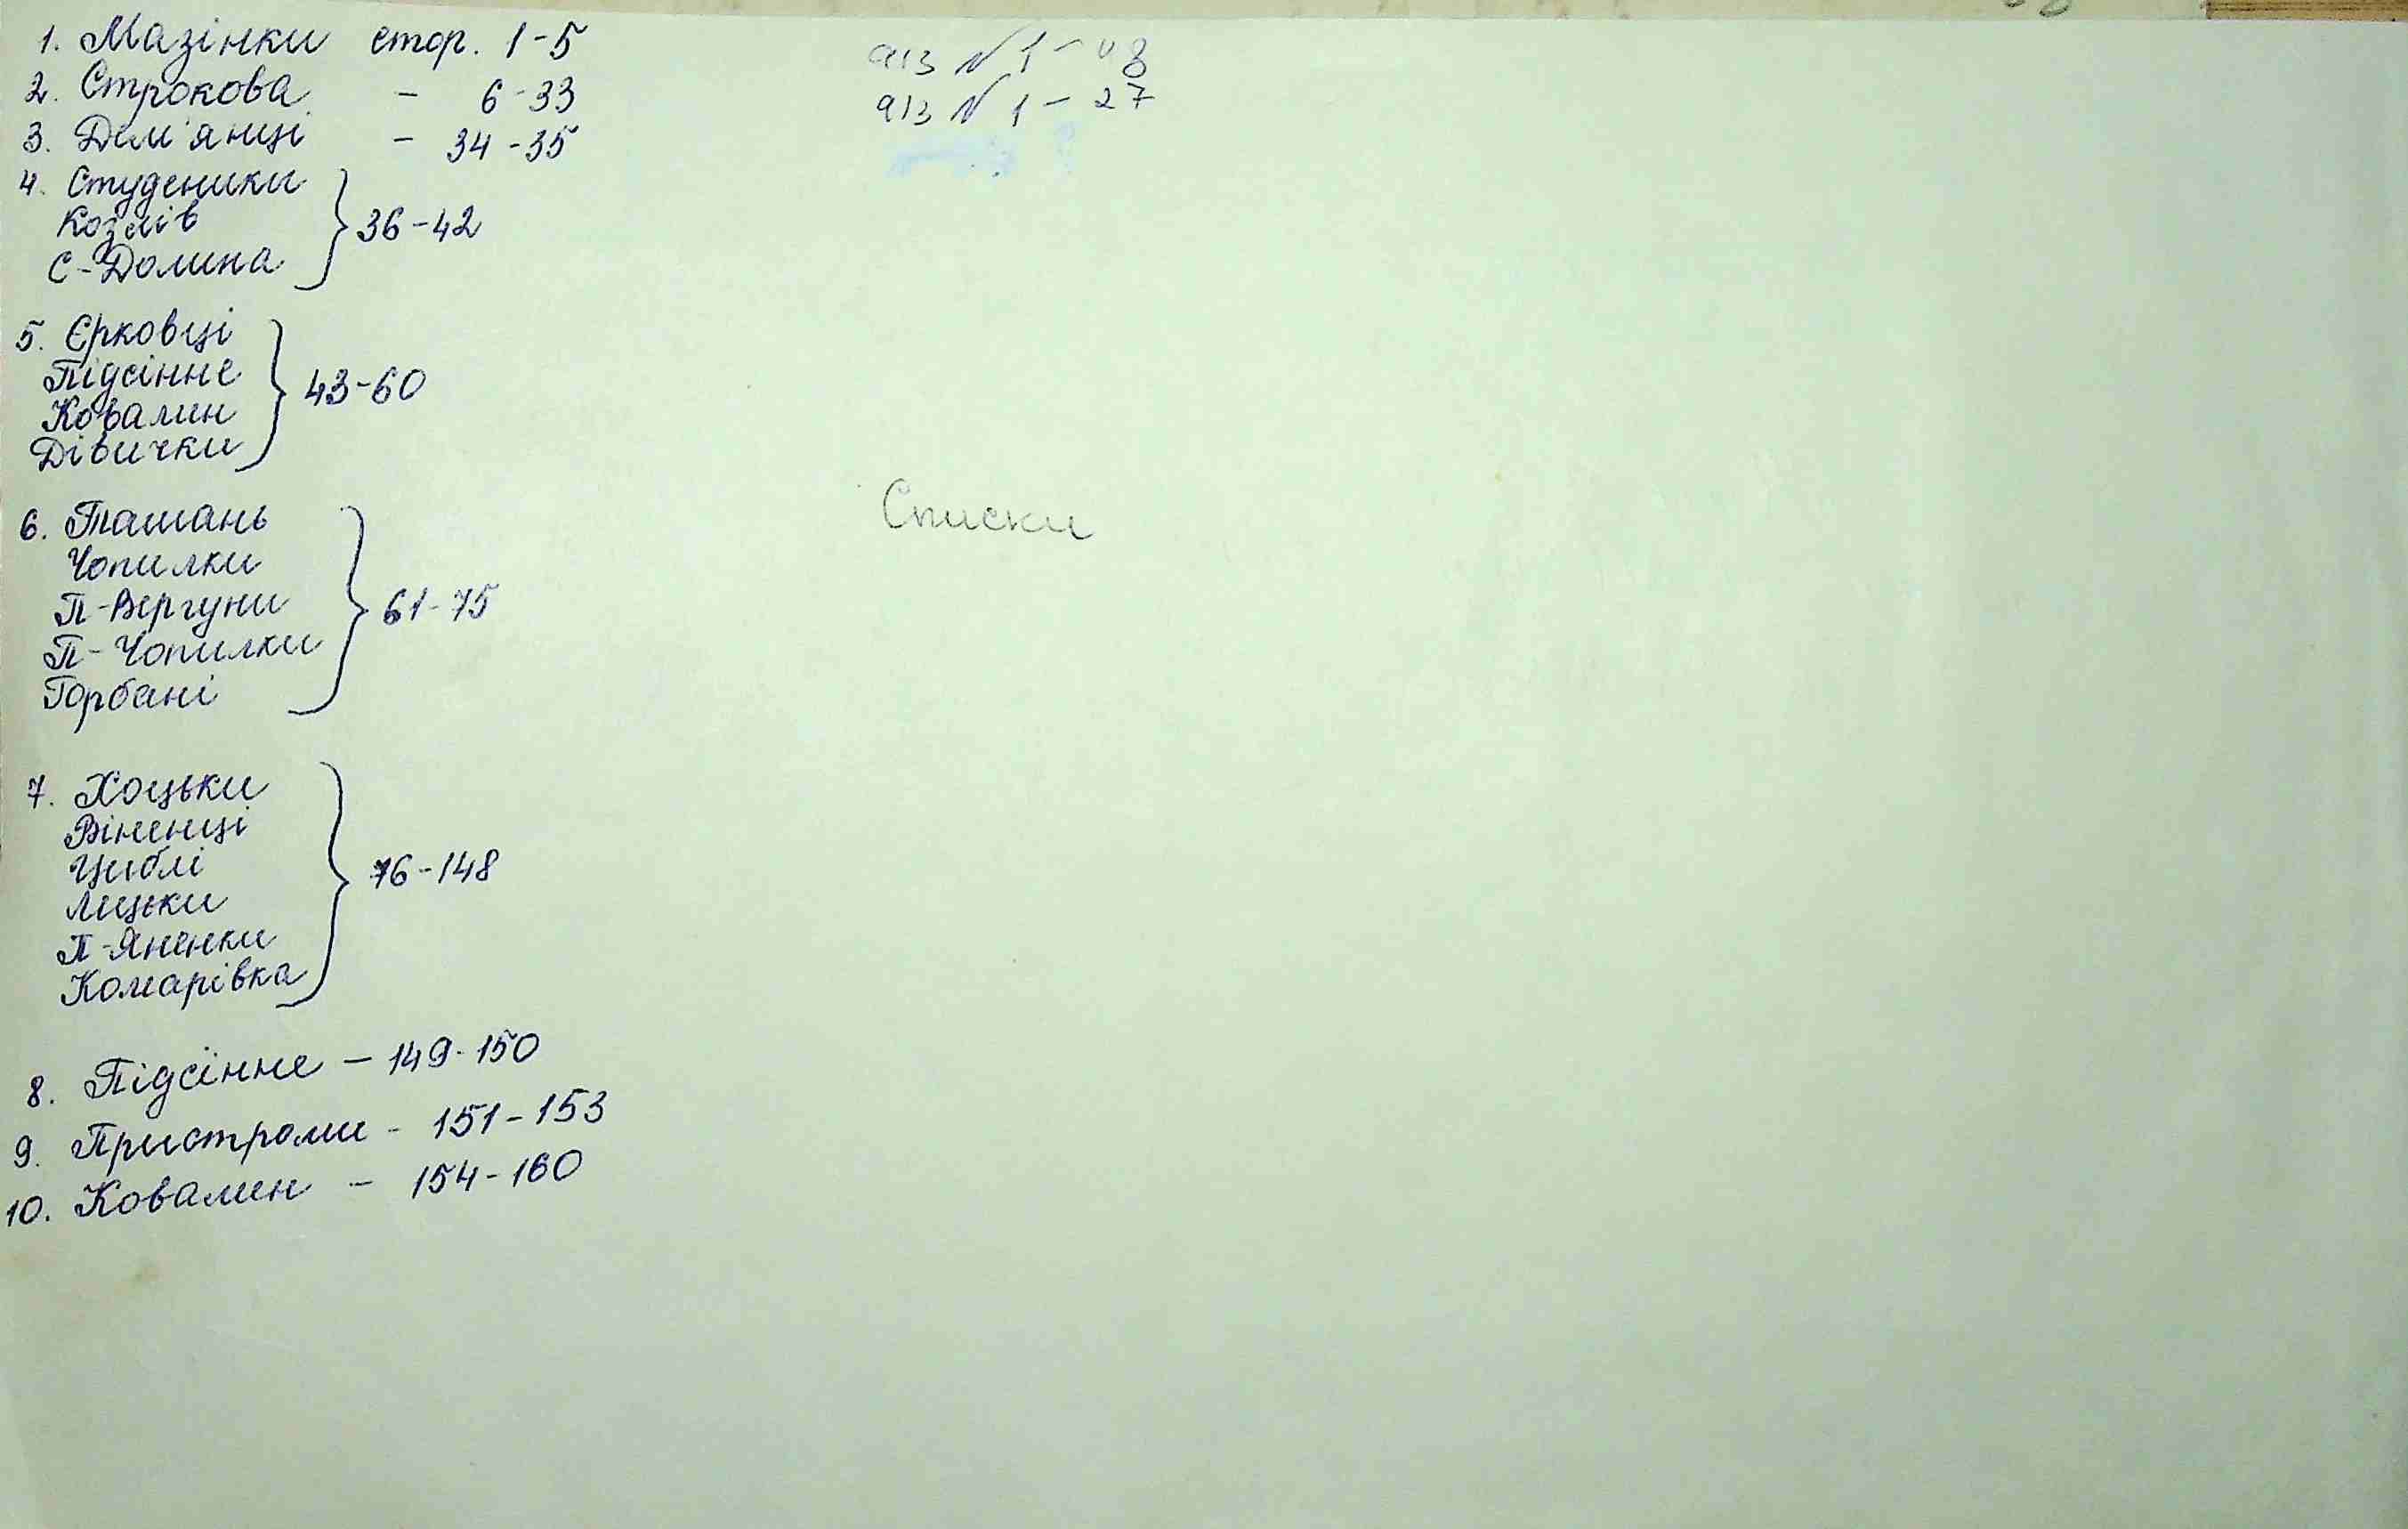 1. Мазінки стор. 1-5
2. Строкова - 6-33
3. Дем'янці - 34-35
4. Студеники
Козлів
С-Долина
36-42
5. Єрковці
Підсінне
Ковалин
Дівички
43-60
6. Ташань
Чопилки
П-Вергуни
П-Чопилки
Горбані
61-75
7. Хоцьки
Віненці
Циблі
Лецьки
П-Яненки
Комарівка
76-148
8. Підсінне - 149-150
9. Пристроми - 151-153
10. Ковалин - 154-160
а/з № 1 - 08
а/з № 1 - 27
Списки